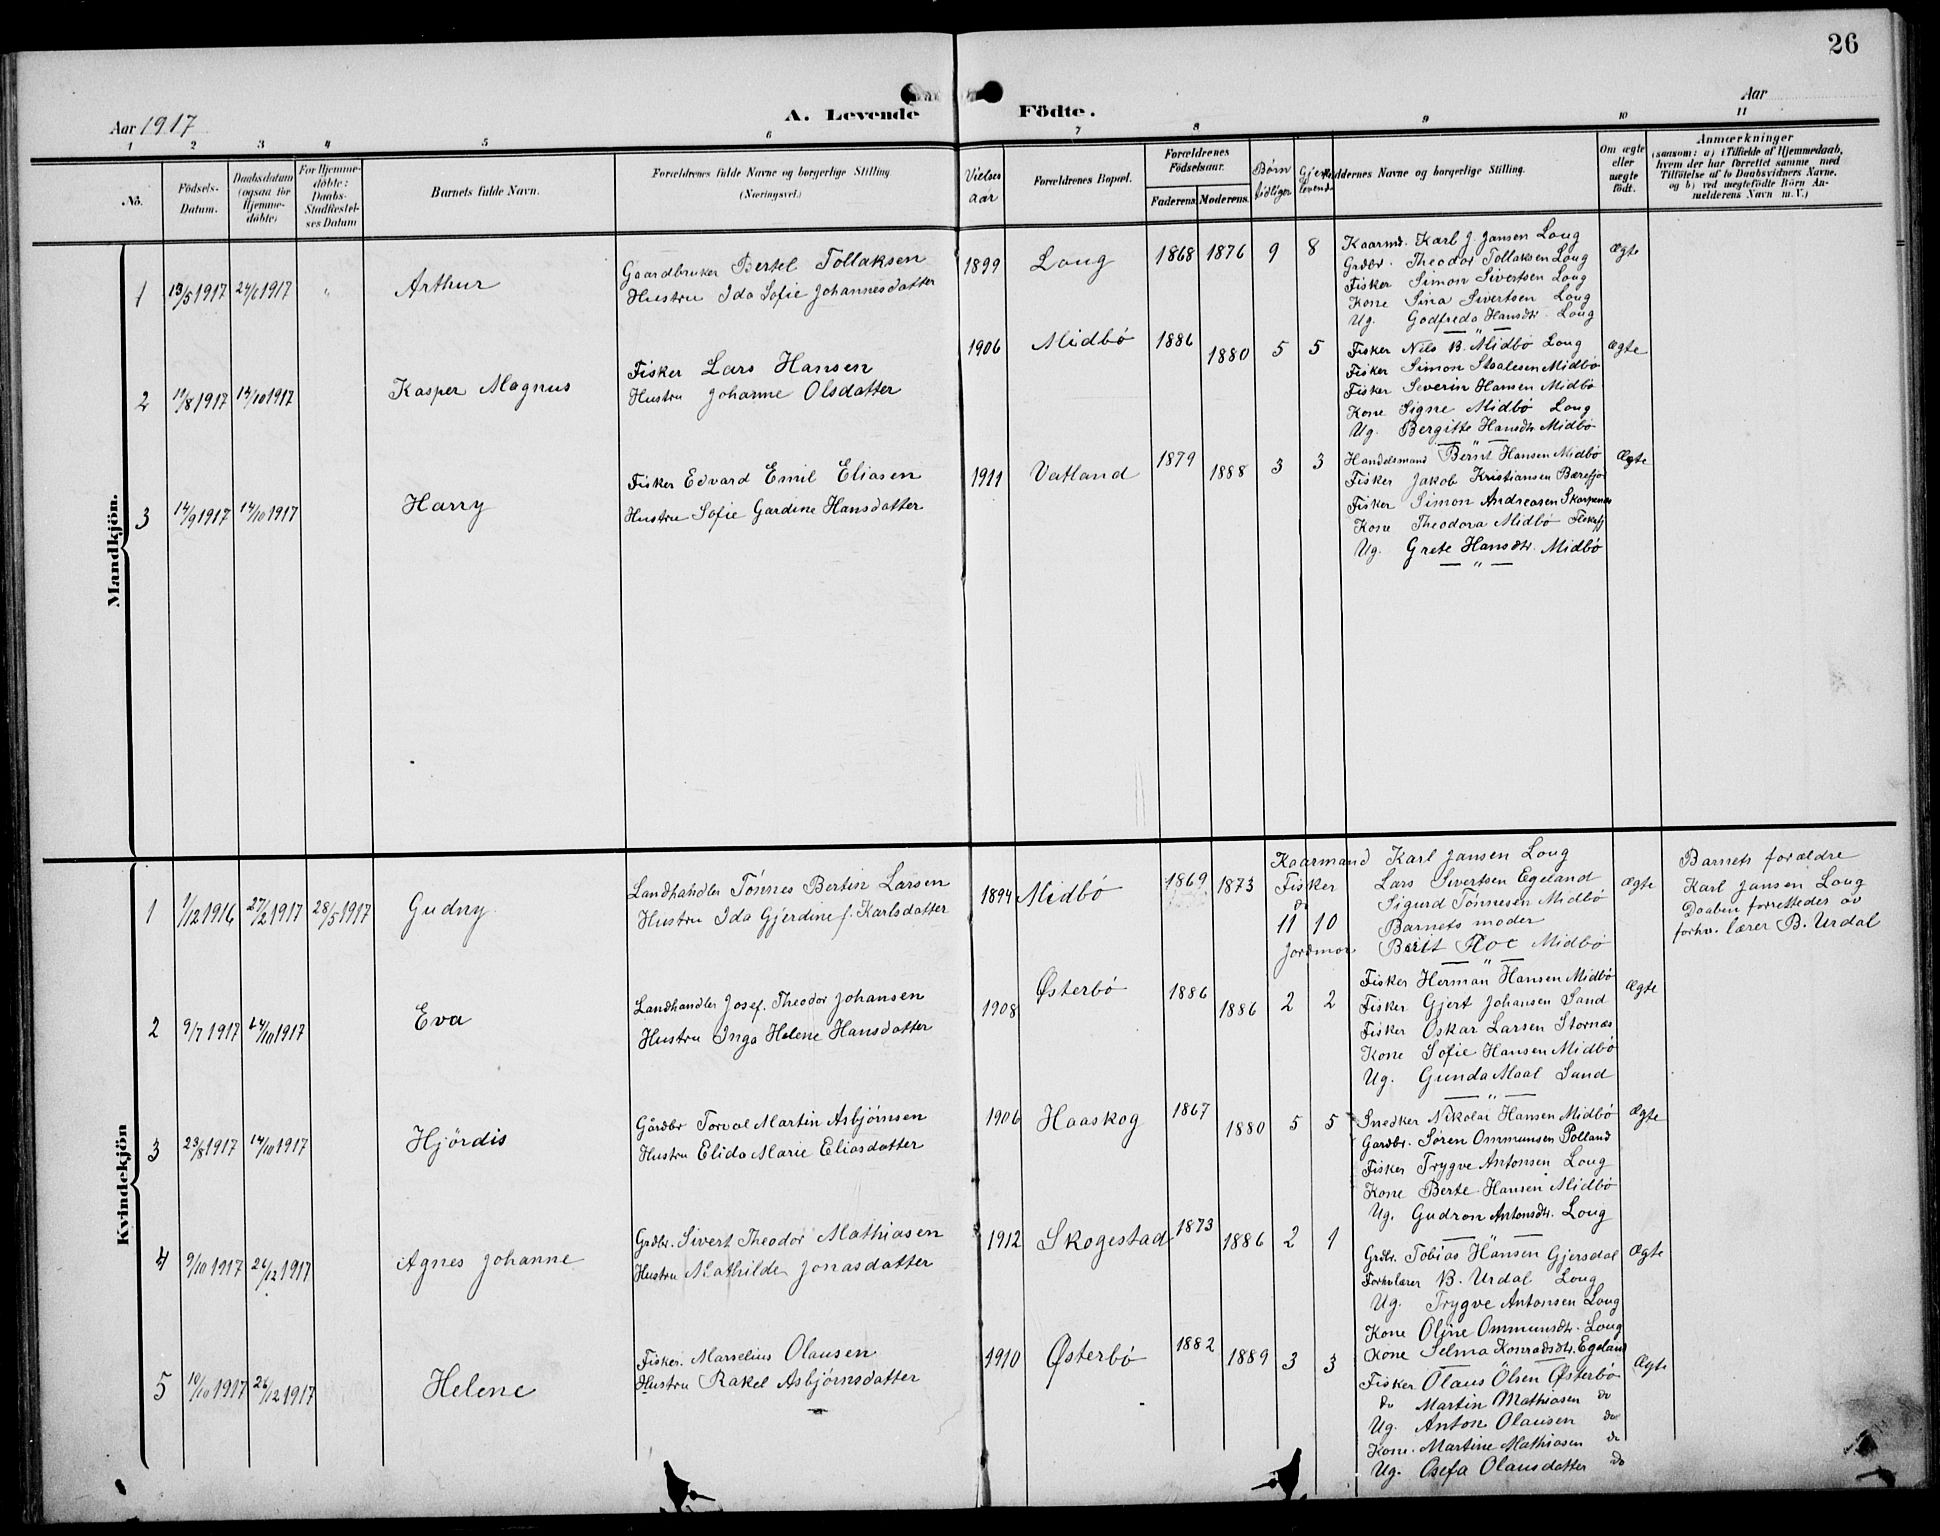 26
Aar 1917
A. Levende Födte.
Aar
1 2 3 4 5 6 7 8 9 10 11
No.
Födsels-Datum.
Daabsdatum (ogsaa for Hjemme-döbte)
For Hjemme-döbte: Daabs-Stadfæstel-ses Datum
Barnets fulde Navn.
Forældrenes fulde Navne og borgerlige Stilling (Næringsvei.)
Vielses aar
Forældrenes Bopæl.
Forældrenes Födselsaar.
Faderens. Moderens.
Börn tidliger
Gjen levende
Faddernes Navne og borgerlige Stilling.
Om ægte eller uægte födt.
Anmærkninger
(saasom: a) i Tilfælde af Hjemmedaab,
hvem der har forrettet samme, med
Tilföielse af to Daabsvidners Navne.
og b) ved uægtefödte Börn An-
melderens Navn m. V.)
Mandkjön.
1 13/5 1917 24/6 1917 " Arthur
Gaardbruker Bertel Tollaksen
Hustru Ida Sofie Johannesdatter
1899 Loug 1868 1876 9 8
Kaarmd. Karl J. Jansen Loug
Grdbr. Theodor Tollaksen Loug
Fisker Simon Sivertsen Loug
Kone Sina Sivertsen Loug
Ug. Godfreda Hansdtr. Loug
Ægte
2 11/8 1917 14/10 1917 Kasper Magnus
Fisker Lars Hansen
Hustru Johanne Olsdatter
1906 Midbö 1886 1880 5 5
Fisker Nils B. Midbö Loug
Fisker Simon Staalesen Midbö
Fisker Severin Hansen Midbö
Kone Signe Midbö Loug
Ug. Bergitte Hansdtr. Midbö
Ægte
3 14/9 1917 14/10 1917 Harry
Fisker Edvard Emil Eliasen
Hustru Sofie Gardine Hansdatter
1911 Vatland 1879 1888 3 3
Handelsmand Bernt Hansen Midbö
Fisker Jakob Kristiansen Bærefjor
Fisker Simon Andreasen Skarpenes
Kone Theodora Midbö Flekefj
Ug. Grete Hansdtr. Midbö
Ægte
Kvindekjön
1 1/12 1916 27/2 1917 28/5 1917 Gudny
Landhandler Tönnes Bertin Larsen
Hustru Ida Gjerdine f. Karlsdatter
1894 Midbö 1869 1873 11 10
Kaarmand Karl Jansen Loug
Fisker Lars Sivertsen Egeland
do Sigurd Tönnesen Midbö
Barnets moder
Jordmor Berit Floe Midbö
Ægte
Barnets forældre
Karl Jansen Loug
Daaben forrettedes av
forhv. lærer B. Urdal
2 9/7 1917 14/10 1917 Eva
Landhandler Josef. Theodor Johansen
Hustru Inga Helene Hansdatter
1908 Østerbö 1886 1886 2 2
Fisker Herman Hansen Midbö
Fisker Gjert Johansen Sand
Fisker Oskar Larsen Stornæs
Kone Sofie Hansen Midbö
Ug. Gunda Maal Sand
Ægte
3 23/8 1917 14/10 1917 Hjördis
Gårdbr Torval Martin Asbjörnsen
Hustru Elida Marie Eliasdatter
1906 Haaskog 1867 1880 5 5
Snedker Nikolai Hansen Midbö
Gardbr. Sören Ommunsen Polland
Fisker Trygve Antonsen Loug
Kone Berte Hansen Midbö
Ug. Gudron Antonsdtr. Loug
Ægte
4 9/10 1917 26/12 1917 Agnes Johanne
Grdbr. Sivert Theodor Mathiasen
Hustru Mathilde Jonasdatter
1912 Skogestad 1873 1886 2 1
Grdbr. Tobias Hansen Gjersdal
Forhv lærer B. Urdal Loug
Ug. Trygve Antonsen Loug
Kone Oline Ommunsdtr. Loug
Kone Selma Konradsdtr. Egeland
Ægte
5 10/10 1917 26/12 1917 Helene
Fisker. Marselius Olausen
Hustru Rakel Asbjörnsdatter
1910 Østerbö 1882 1889 3 3
Fisker Olaus Olsen Østerbö
do Martin Mathiasen do
Ug. Anton Olausen do
Kone. Martine Mathiasen do
Ug. Osefa Olausdatter do
Ægte